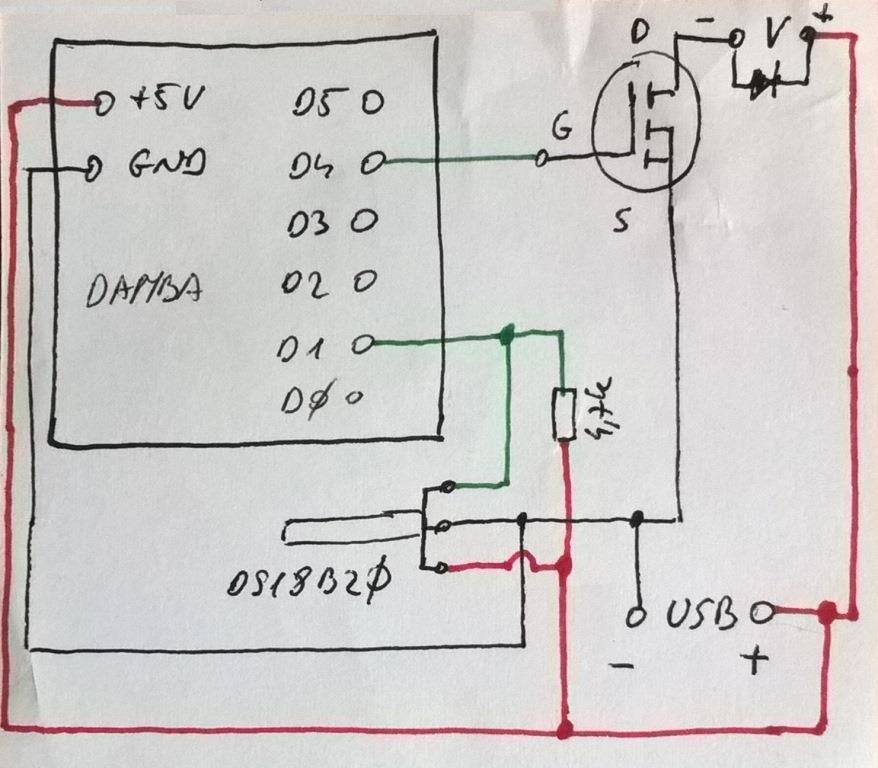 D - V +
+5V D5
G
GND D4
D3
S
DAMBA D2
D1
DØ
4,7k
DS18B2Ø
USB
- +